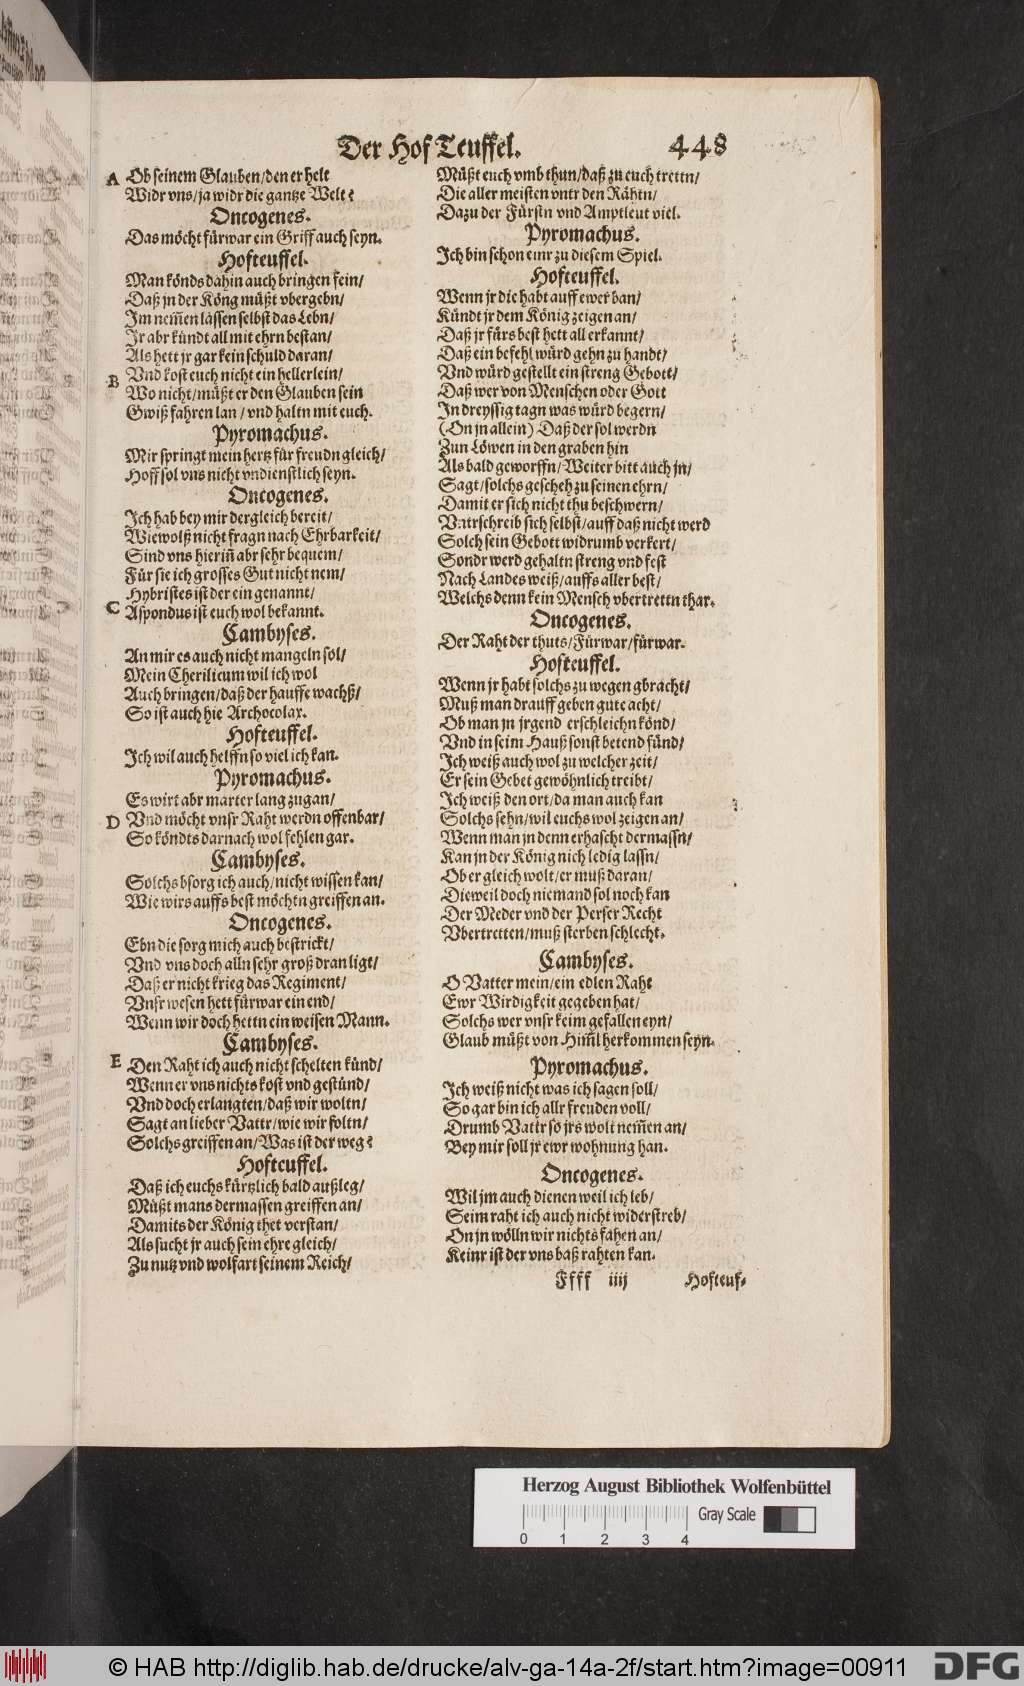 Der Hof Teuffel.
448
A Ob seinem Glauben/den er helt
Widr vns/ja widr die gantze Welt?
Oncogenes.
Das möcht fürwar ein Griff auch seyn.
Hofteuffel.
Man könds dahin auch bringen fein/
Daß jn der Köng müßt vbergebn/
Im nem̃en lassen selbst das Lebn/
Ir abr kündt all mit ehrn bestan/
Als hett jr gar kein schuld daran/
B Vnd kost euch nicht ein hellerlein/
Wo nicht/müßt er den Glauben sein
Gwiß fahren lan/vnd haltn mit euch.
Pyromachus.
Mir springt mein hertz für freudn gleich/
Hoff sol vns nicht vndienstlich seyn.
Oncogenes.
Ich hab bey mir dergleich bereit/
Wiewolß nicht fragn nach Ehrbarkeit/
Sind vns hierin̄ abr sehr bequem/
Für sie ich grosses Gut nicht nem/
Hybristes ist der ein genannt/
C Aspondus ist euch wol bekannt.
Cambyses.
An mir es auch nicht mangeln sol/
Mein Cherilicum wil ich wol
Auch bringen/daß der hauffe wachß/
So ist auch hie Archocolax.
Hofteuffel.
Ich wil auch helffn so viel ich kan.
Pyromachus.
Es wirt abr marter lang zugan/
D Vnd möcht vnsr Raht werdn offenbar/
So köndts darnach wol fehlen gar.
Cambyses.
Solchs bsorg ich auch/nicht wissen kan/
Wie wirs auffs best möchtn greiffen an.
Oncogenes.
Ebn die sorg mich auch bestrickt/
Vnd vns doch alln sehr groß dran ligt/
Daß er nicht krieg das Regiment/
Vnsr wesen hett fürwar ein end/
Wenn wir doch hettn ein weisen Mann.
Cambyses.
E Den Raht ich auch nicht schelten künd/
Wenn er vns nichts kost vnd gestünd/
Vnd doch erlangten/daß wir woltn/
Sagt an lieber Vattr/wie wir soltn/
Solchs greiffen an/Was ist der weg?
Hofteuffel.
Daß ich euchs kürtzlich bald außleg/
Müßt mans dermassen greiffen an/
Damits der König thet verstan/
Als sucht jr auch sein ehre gleich/
Zu nutz vnd wolfart seinem Reich/
Müßt euch vmb thun/daß zu euch trettn/
Die aller meisten vntr den Rähtn/
Dazu der Fürstn vnd Amptleut viel.
Pyromachus.
Ich bin schon einr zu diesem Spiel.
Hofteuffel.
Wenn jr die habt auff ewer ban/
Kündt jr dem König zeigen an/
Daß jr fürs best hett all erkannt/
Daß ein befehl würd gehn zu handt/
Vnd würd gestellt ein streng Gebott/
Daß wer von Menschen oder Gott
In dreyssig tagn was würd begern/
(On jn allein) Daß der sol werdn
Zun Löwen in den graben hin
Als bald geworffn/Weiter bitt auch jn/
Sagt/solchs gescheh zu seinen ehrn/
Damit er sich nicht thu beschwern/
Vntrschreib sich selbst/auff daß nicht werd
Solch sein Gebott widrumb verkert/
Sondr werd gehaltn streng vnd fest
Nach Landes weiß/auffs aller best/
Welchs denn kein Mensch vbertrettn thar.
Oncogenes.
Der Raht der thuts/Fürwar/fürwar.
Hofteuffel.
Wenn jr habt solchs zu wegen gbracht/
Muß man drauff geben gute acht/
Ob man jn jrgend erschleichn könd/
Vnd in seim Hauß sonst betend fünd/
Ich weiß auch wol zu welcher zeit/
Er sein Gebet gewöhnlich treibt/
Ich weiß den ort/da man auch kan
Solchs sehn/wil euchs wol zeigen an/
Wenn man jn denn erhascht dermassn/
Kan jn der König nich ledig lassn/
Ob er gleich wolt/er muß daran/
Dieweil doch niemand sol noch kan
Der Meder vnd der Perser Recht
Vbertretten/muß sterben schlecht.
Cambyses.
O Vatter mein/ein edlen Raht
Ewr Wirdigkeit gegeben hat/
Solchs wer vnsr keim gefallen eyn/
Glaub müßt von Him̃l herkommen seyn.
Pyromachus.
Ich weiß nicht was ich sagen soll/
So gar bin ich allr freuden voll/
Drumb Vattr so jrs wolt nem̃en an/
Bey mir soll jr ewr wohnung han.
Oncogenes.
Wil jm auch dienen weil ich leb/
Seim raht ich auch nicht widerstreb/
On jn wölln wir nichts fahen an/
Keinr ist der vns baß rahten kan.
Ffff iiij Hofteuf-
Herzog August Bibliothek Wolfenbüttel
Gray Scale
0 1 2 3 4
© HAB http://diglib.hab.de/drucke/alv-ga-14a-2f/start.htm?image=00911
DFG